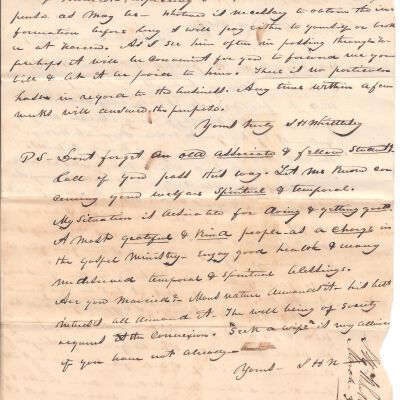 pense as may be - whenever it is necessary to obtain the in
formation before long I will pay either to yourself or brok
er at Norwich. As I see him often in passing through to-
perhaps it will be convenient for you to forward me your
bill & let it be paid to him. There is no particular
haste in regard to the business. Any time within a few
weeks will answer the purpose.
Yours truly S H Whittlesey
PS - Dont forget an old associate & fellow Student
Call if you pass this way. Let me know con
cerning your welfare Spiritual & temporal.
My Situation is desirable for doing & getting good.
A most grateful & kind people as a charge in
the Gospel Ministry - enjoy good health & many
undeserved temporal & spiritual blessings.
Are you Married? - Mans nature demands it - his best
interests all demand it - The well being of Society
requires the connexion. "Seek a wife" is my advice
if you have not already -
Yours - S H W